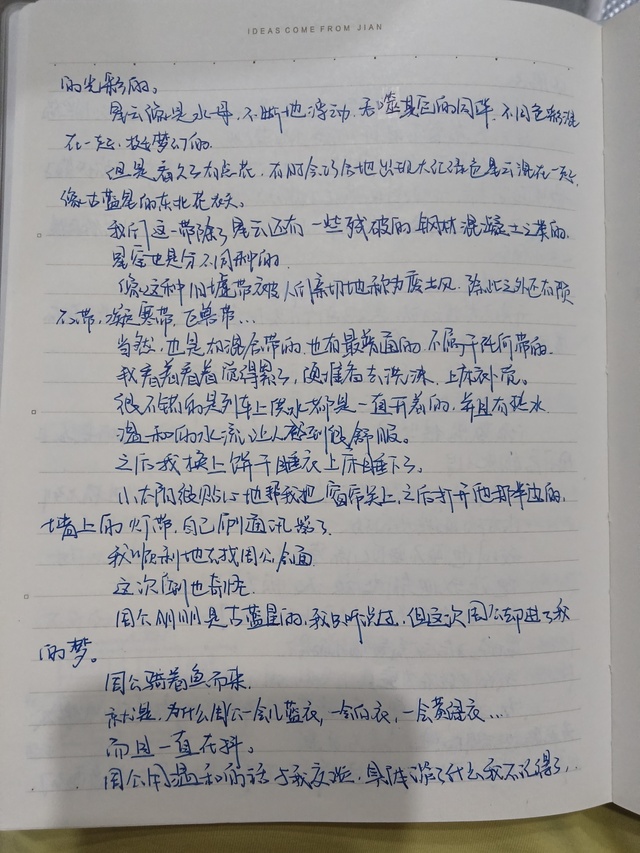 IDEAS COME FROM JIAN
的光彩的。
星云像是水母,不断地浮动,吞噬其它的同伴,不同色彩混
在一起,挺梦幻的。
但是看久了有点花,有时会巧合地出现大红绿色星云混在一起,
像古蓝星的东北花袄。
我们这一带除了星云还有一些残破的钢材混凝土之类的。
星空也是分不同种的。
像这种旧墟带被人们亲切地称为废土风,除此之外还有陨
石带,凝寒带,巨兽带…
当然,也是有混合带的,也有最普通的不属于任何带的。
我看着看着觉得累了,便准备去洗漱、上床补觉。
很不错的是列车上供水都是一直开着的,并且有热水
温和的水流让人感到很舒服。
之后我换上饼干睡衣上床睡下了。
小太阳很贴心地帮我把窗帘关上,之后打开他那半边的,
墙上的灯带,自己刷通讯器了。
我顺利地去找周公会面
这次倒也奇怪
周公明明是古蓝星的,我只听说过,但这次周公却进了我
的梦。
周公骑着鱼而来
就是,为什么周公一会儿蓝衣,一会白衣,一会黄绿衣…
而且一直在抖。
周公用温和的话与我交谈,具体谈了什么我不记得了…